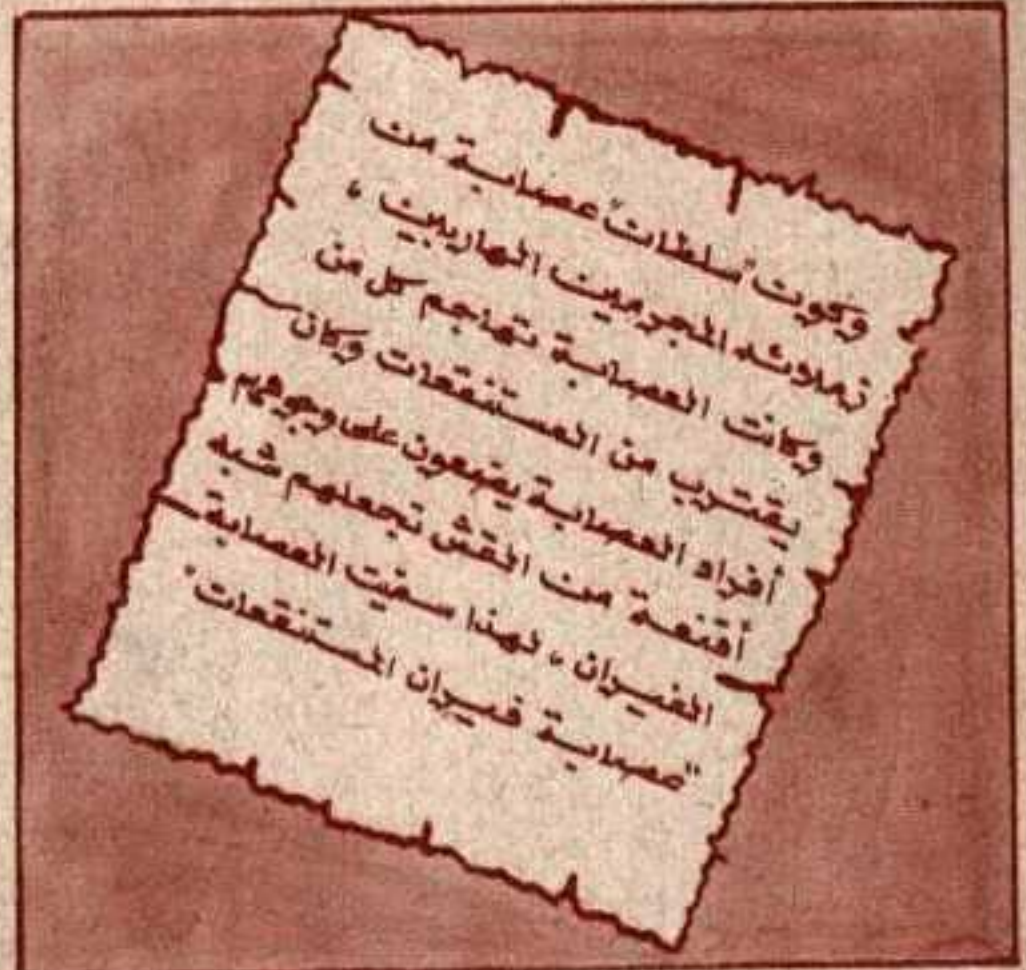 وكون "سلطان" عصابة من
زملائه المجرمين الهاربين،
وكانت العصابة تهاجم كل من
يقترب من المستنقعات وكان
أفراد العصابة يضعون على وجوههم
أقنعة من القش تجعلهم شبه
الفيران، لهذا سميت العصابة
"عصابة فيران المستنقعات"